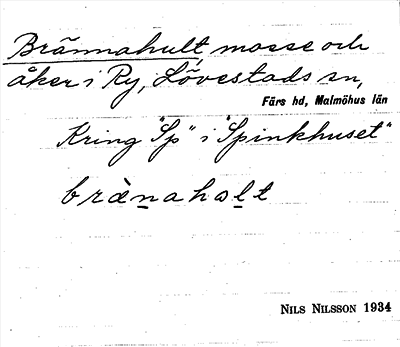 Brännahult, mosse och
åker i Ry, Lövestads sn,
Färs hd, Malmöhus län
Kring "Sp" i "Spinkhuset"
bræ̀n̲ahol̲t
NILS NILSSON 1934